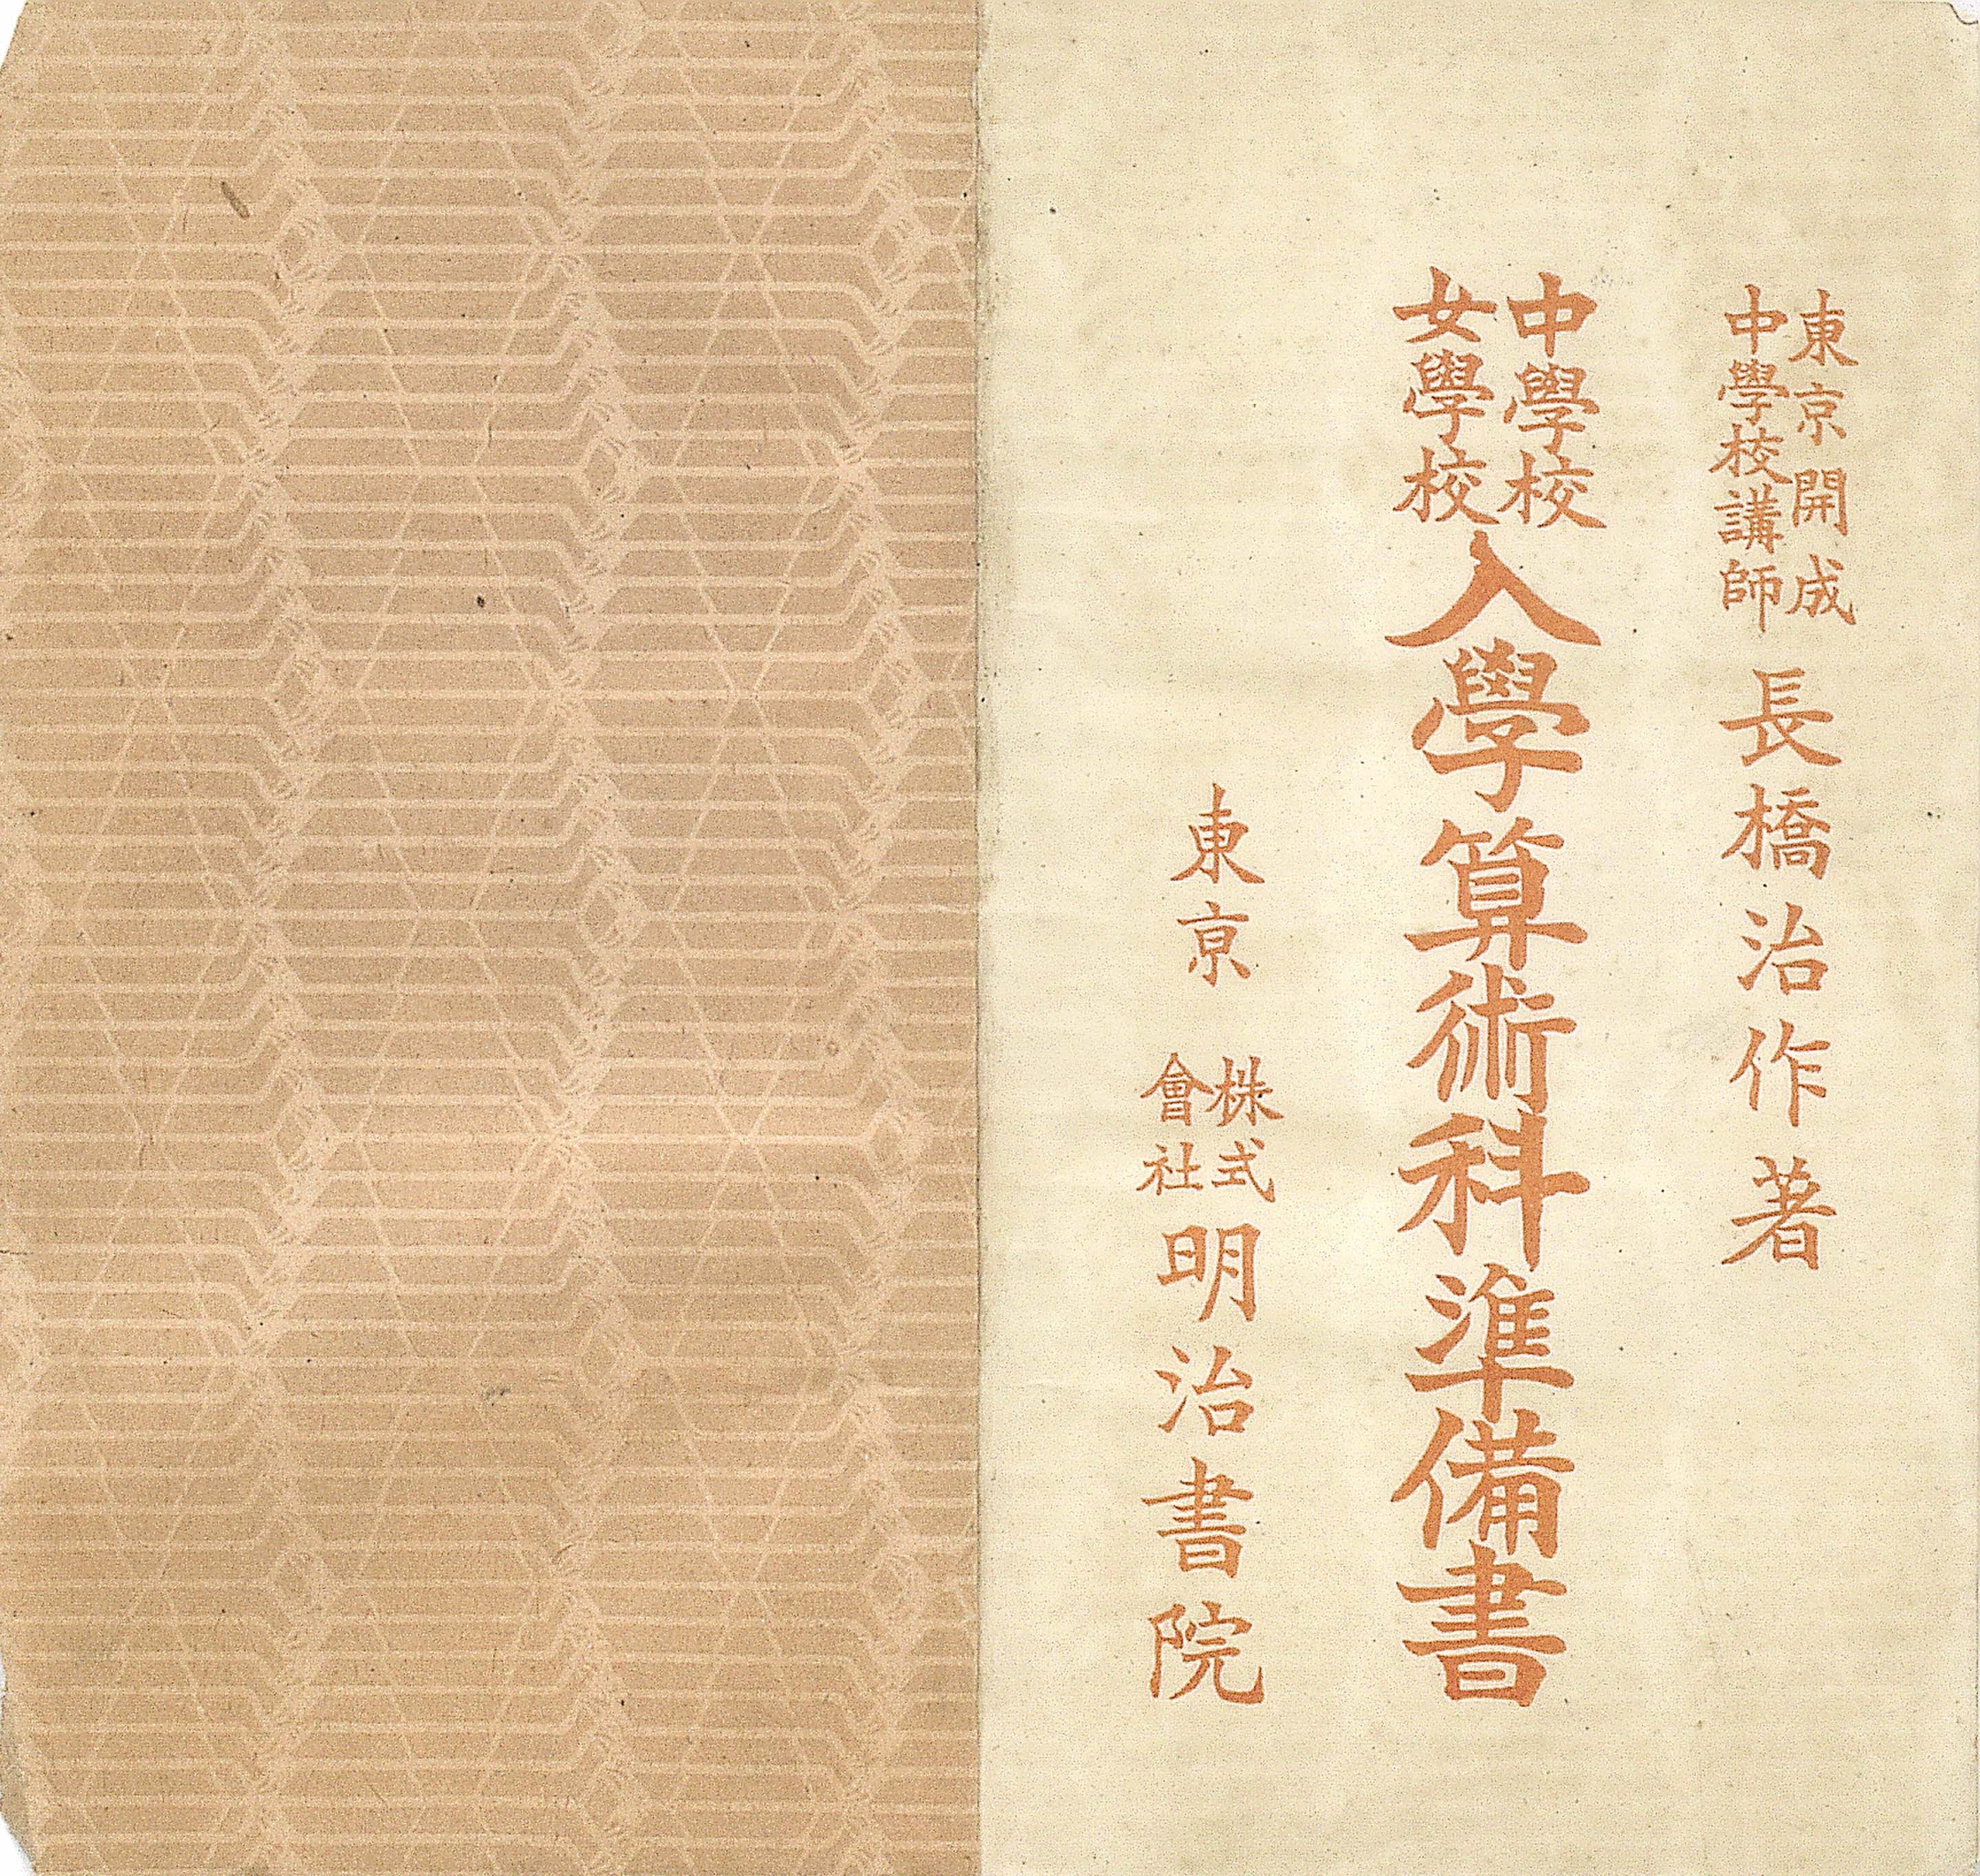 東京開成
中學校講師
長橋治作著
中學校
女學校
入學算術科準備書
東京
株式
會社
明治書院